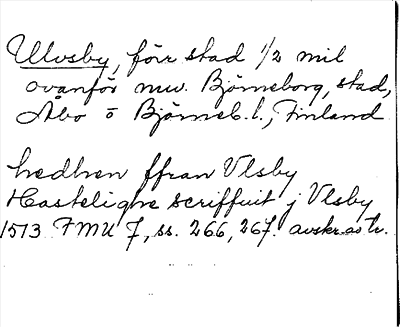 Ulvsby, förr stad 1/2 mil
ovanför nuv. Björneborg, stad,
Åbo o Björneb. l., Finland
hedhen ffran Vlsby
Hasteligne scriffuit j Vlsby
1513 FMU 7, ss. 266, 267. avskr. av tr.